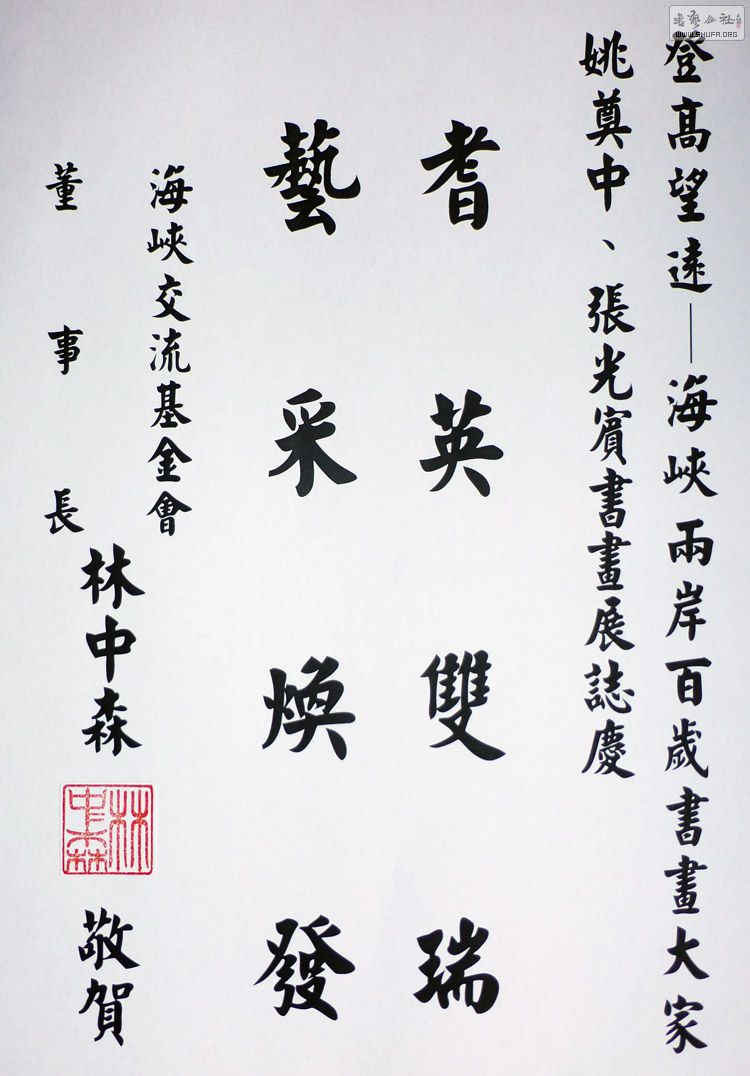 登高望遠——海峽兩岸百歲書畫大家
姚奠中、張光賓書畫展誌慶
耆英雙瑞
藝采煥發
海峽交流基金會
董事長
林中森
林中森
敬賀
書藝公社
WWW.SHUFA.ORG